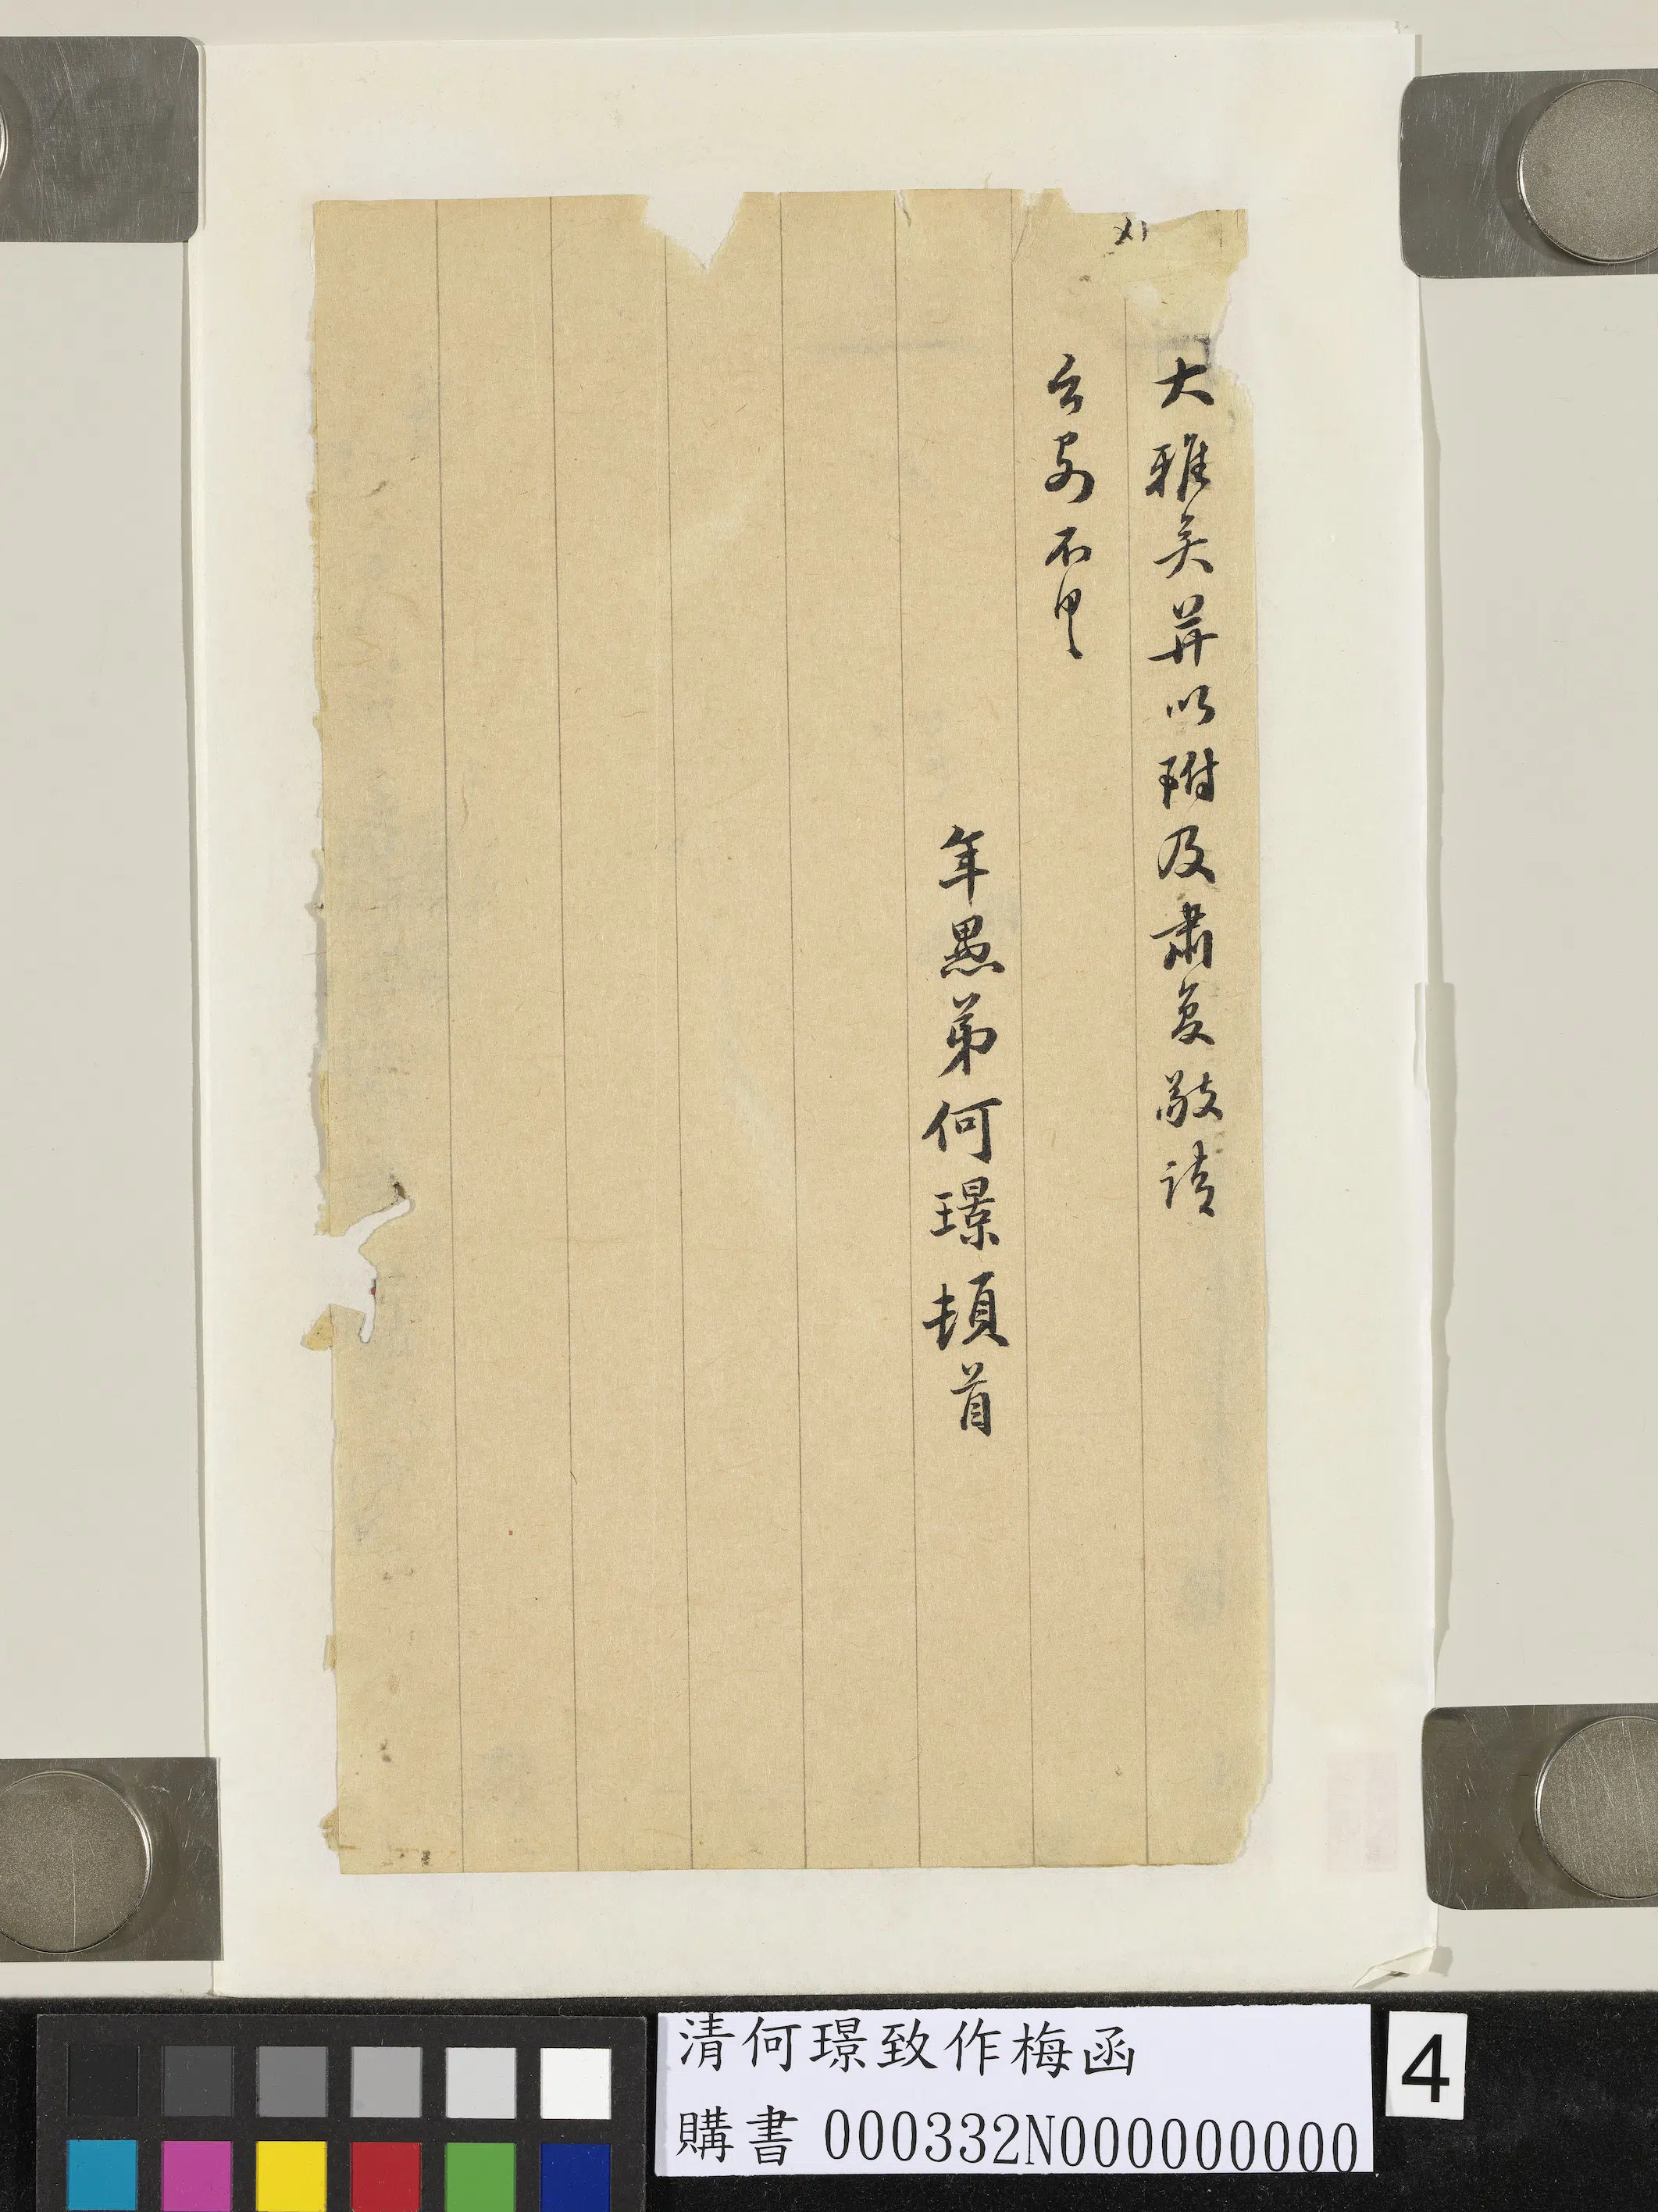 大雅笑并以附及肅复敬請
台安不具
年愚弟何璟頓首
清何璟致作梅函
購書 000332N000000000
4